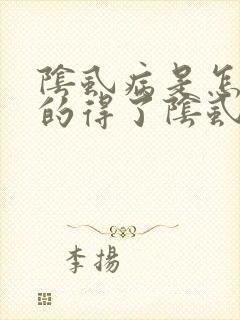 陰虱病是怎
的得了陰虱
李揚